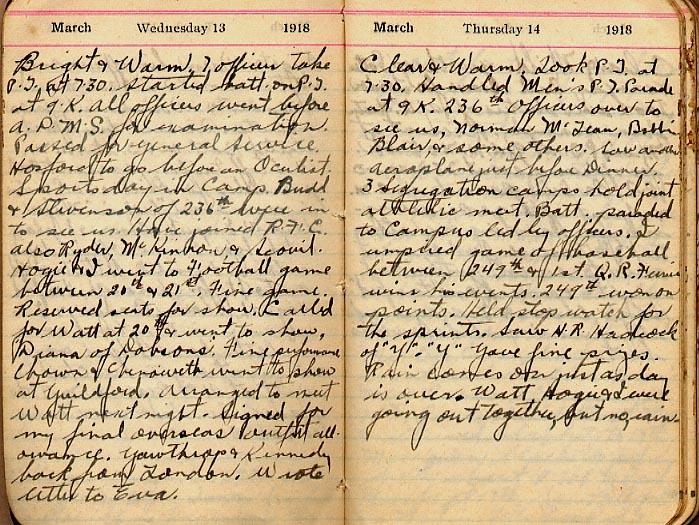 March Wednesday 13 1918
Bright & Warm. 7 officers take
P.T. at 7.30. Started batt. on P.T.
at 9 K. All officers went before
A.D.M.S. for examination.
Passed for General Service.
Hosford to go before an Oculist.
Sports day in Camp. Budd
& Stevenson of 236th were in
to see us. Have joined R.F.C.
also Ryder, McKinnon & Scovil.
Hogie & I went to Football game
between 20th & 21st. Fine game.
Reserved seats for show. Called
for Watt at 20th & went to show,
Diana of Dobsons. Fine performance
Chown & Chenoweth went to show
at Guildford. Arranged to meet
Watt next night. Signed for
my final overseas outfit all-
owance. Yawthrop & Kennedy
back from London. Wrote
letter to Eva.
March Thursday 14 1918
Clear & Warm. Took P.T. at
7.30. Handled Men's P.T. Parade
at 9 K. 236th Officers over to
see us, Norman McLean, Bobbie
Blair, & some others. Saw another
aeroplane just before Dinner.
3 segregation camps hold joint
athletic meet. Batt. paraded
to Campus led by officers. I
umpired game of baseball
between 249th & 1st. Q.R.
wins his events. 249th won on
points. Held stop watch for
the sprints. Saw H.R. Hadcock
of "Y". "Y" gave fine prizes.
Rain comes on just as day
is over. Watt, Hogie & I were
going out together, but no, rain.